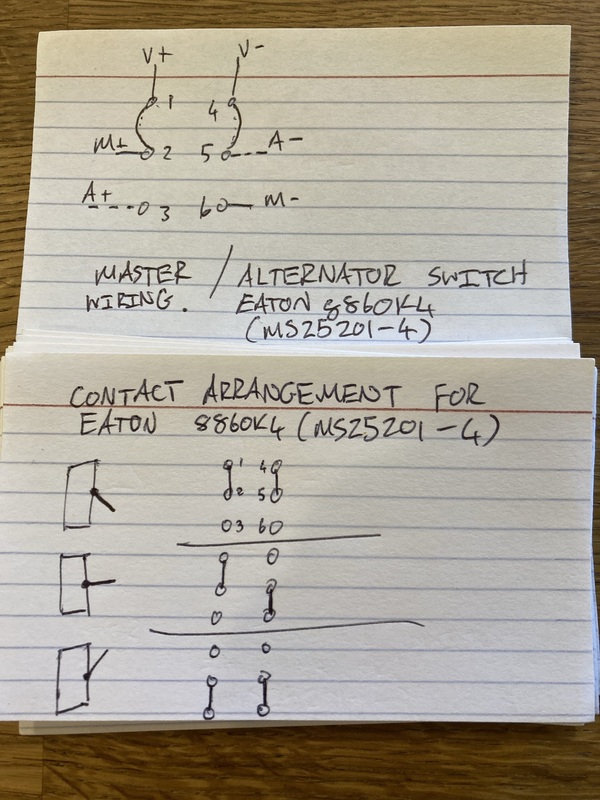 V+ V-
1 4
M+ 2 5 A-
A+ 3 6 M-
MASTER / ALTERNATOR SWITCH
WIRING. EATON 8860K4
(MS25201-4)
CONTACT ARRANGEMENT FOR
EATON 8860K4 (MS25201-4)
1 4
2 5
3 6